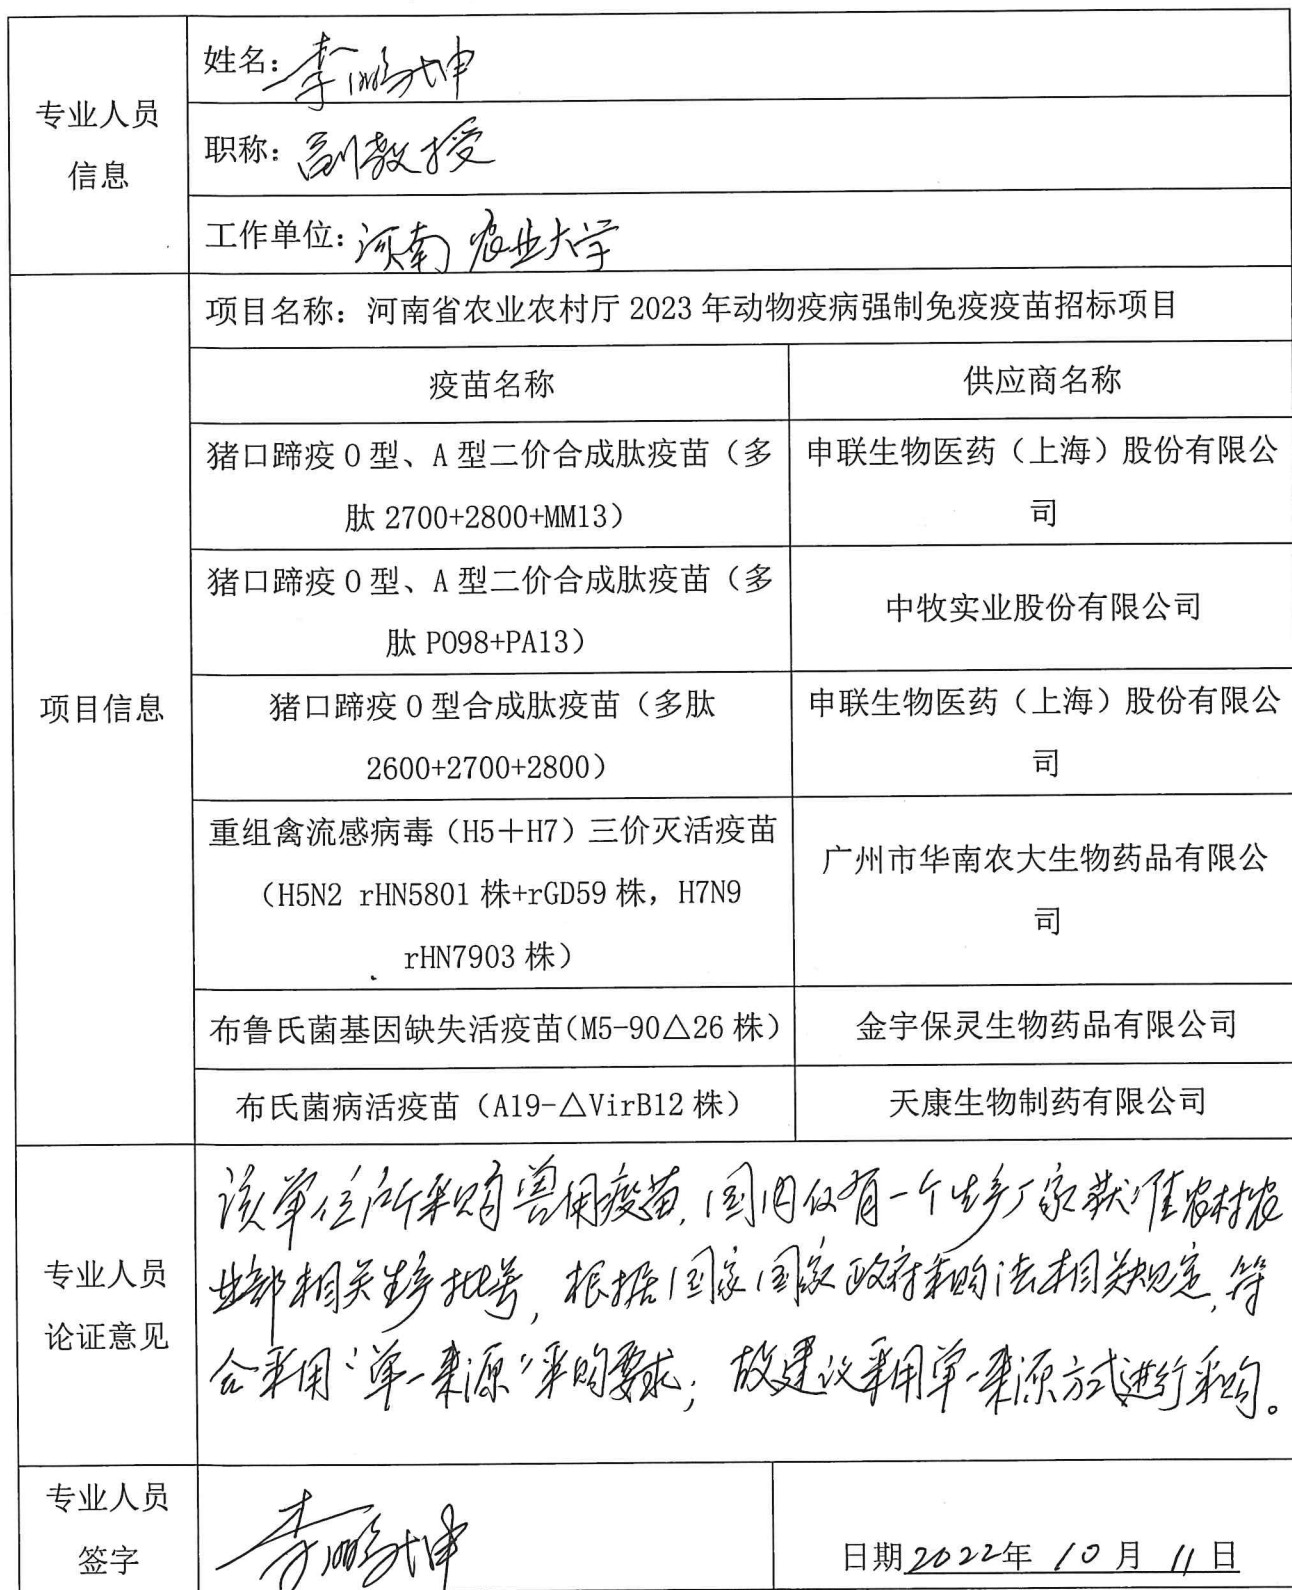 姓名：李鹏坤
专业人员
信息
职称：副教授
工作单位：河南农业大学
项目信息
项目名称：河南省农业农村厅 2023 年动物疫病强制免疫疫苗招标项目
疫苗名称
供应商名称
猪口蹄疫 O 型、A 型二价合成肽疫苗（多
肽 2700+2800+MM13）
申联生物医药（上海）股份有限公
司
猪口蹄疫 O 型、A 型二价合成肽疫苗（多
肽 PO98+PA13）
中牧实业股份有限公司
猪口蹄疫 O 型合成肽疫苗（多肽
2600+2700+2800）
申联生物医药（上海）股份有限公
司
重组禽流感病毒（H5＋H7）三价灭活疫苗
（H5N2 rHN5801 株+rGD59 株，H7N9
rHN7903 株）
广州市华南农大生物药品有限公
司
布鲁氏菌基因缺失活疫苗(M5-90△26 株）
金宇保灵生物药品有限公司
布氏菌病活疫苗（A19-△VirB12 株）
天康生物制药有限公司
专业人员
论证意见
该单位所采购兽用疫苗，国内仅有一个生产厂家获准农村农
业部相关生产批号，根据国家国家政府采购法相关规定，符
合采用“单一来源”采购要求；故建议采用单一来源方式进行采购。
专业人员
签字
李鹏坤
日期 2022年 10 月 11 日